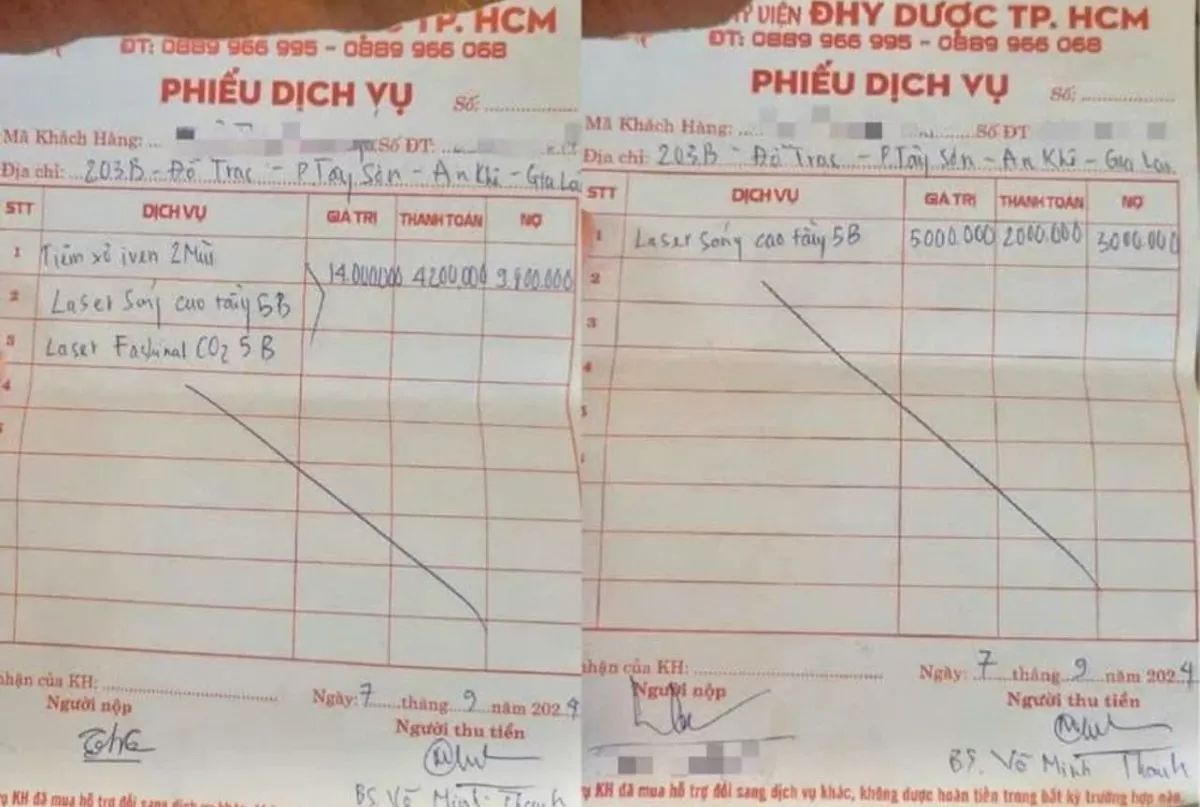 TP. HCM
ĐT: 0889 966 995 - 0889 966 068
PHIẾU DỊCH VỤ
Số:
Mã Khách Hàng:
Số ĐT:
Địa chỉ: 203B - Đỗ Trạc - P. Tây Sơn - An Khê - Gia Lai
STT DỊCH VỤ GIÁ TRỊ THANH TOÁN NỢ
1 Tiêm xơ 2 Mũi
14.000.000 4200.000 9.800.000
2 Laser Sóng cao tầng 5B
3 Laser CO2 5B
4
nhận của KH:
Ngày: 7 tháng 9 năm 2024
Người nộp
Người thu tiền
BS. Võ Minh Thanh
vụ KH đã mua hỗ trợ đổi sang dịch vụ khác,
VIỆN ĐHY DƯỢC TP. HCM
ĐT: 0889 966 995 - 0889 966 068
PHIẾU DỊCH VỤ
Số:
Mã Khách Hàng:
Số ĐT
Địa chỉ: 203B - Đỗ Trạc - P. Tây Sơn - An Khê - Gia Lai
STT DỊCH VỤ GIÁ TRỊ THANH TOÁN NỢ
1 Laser Sóng cao tầng 5B 5000.000 2000.000 3000.000
2
3
4
5
nhận của KH:
Ngày: 7 tháng 9 năm 2024
Người nộp
Người thu tiền
BS. Võ Minh Thanh
vụ KH đã mua hỗ trợ đổi sang dịch vụ khác, không được hoàn tiền trong bất kỳ trường hợp nào.